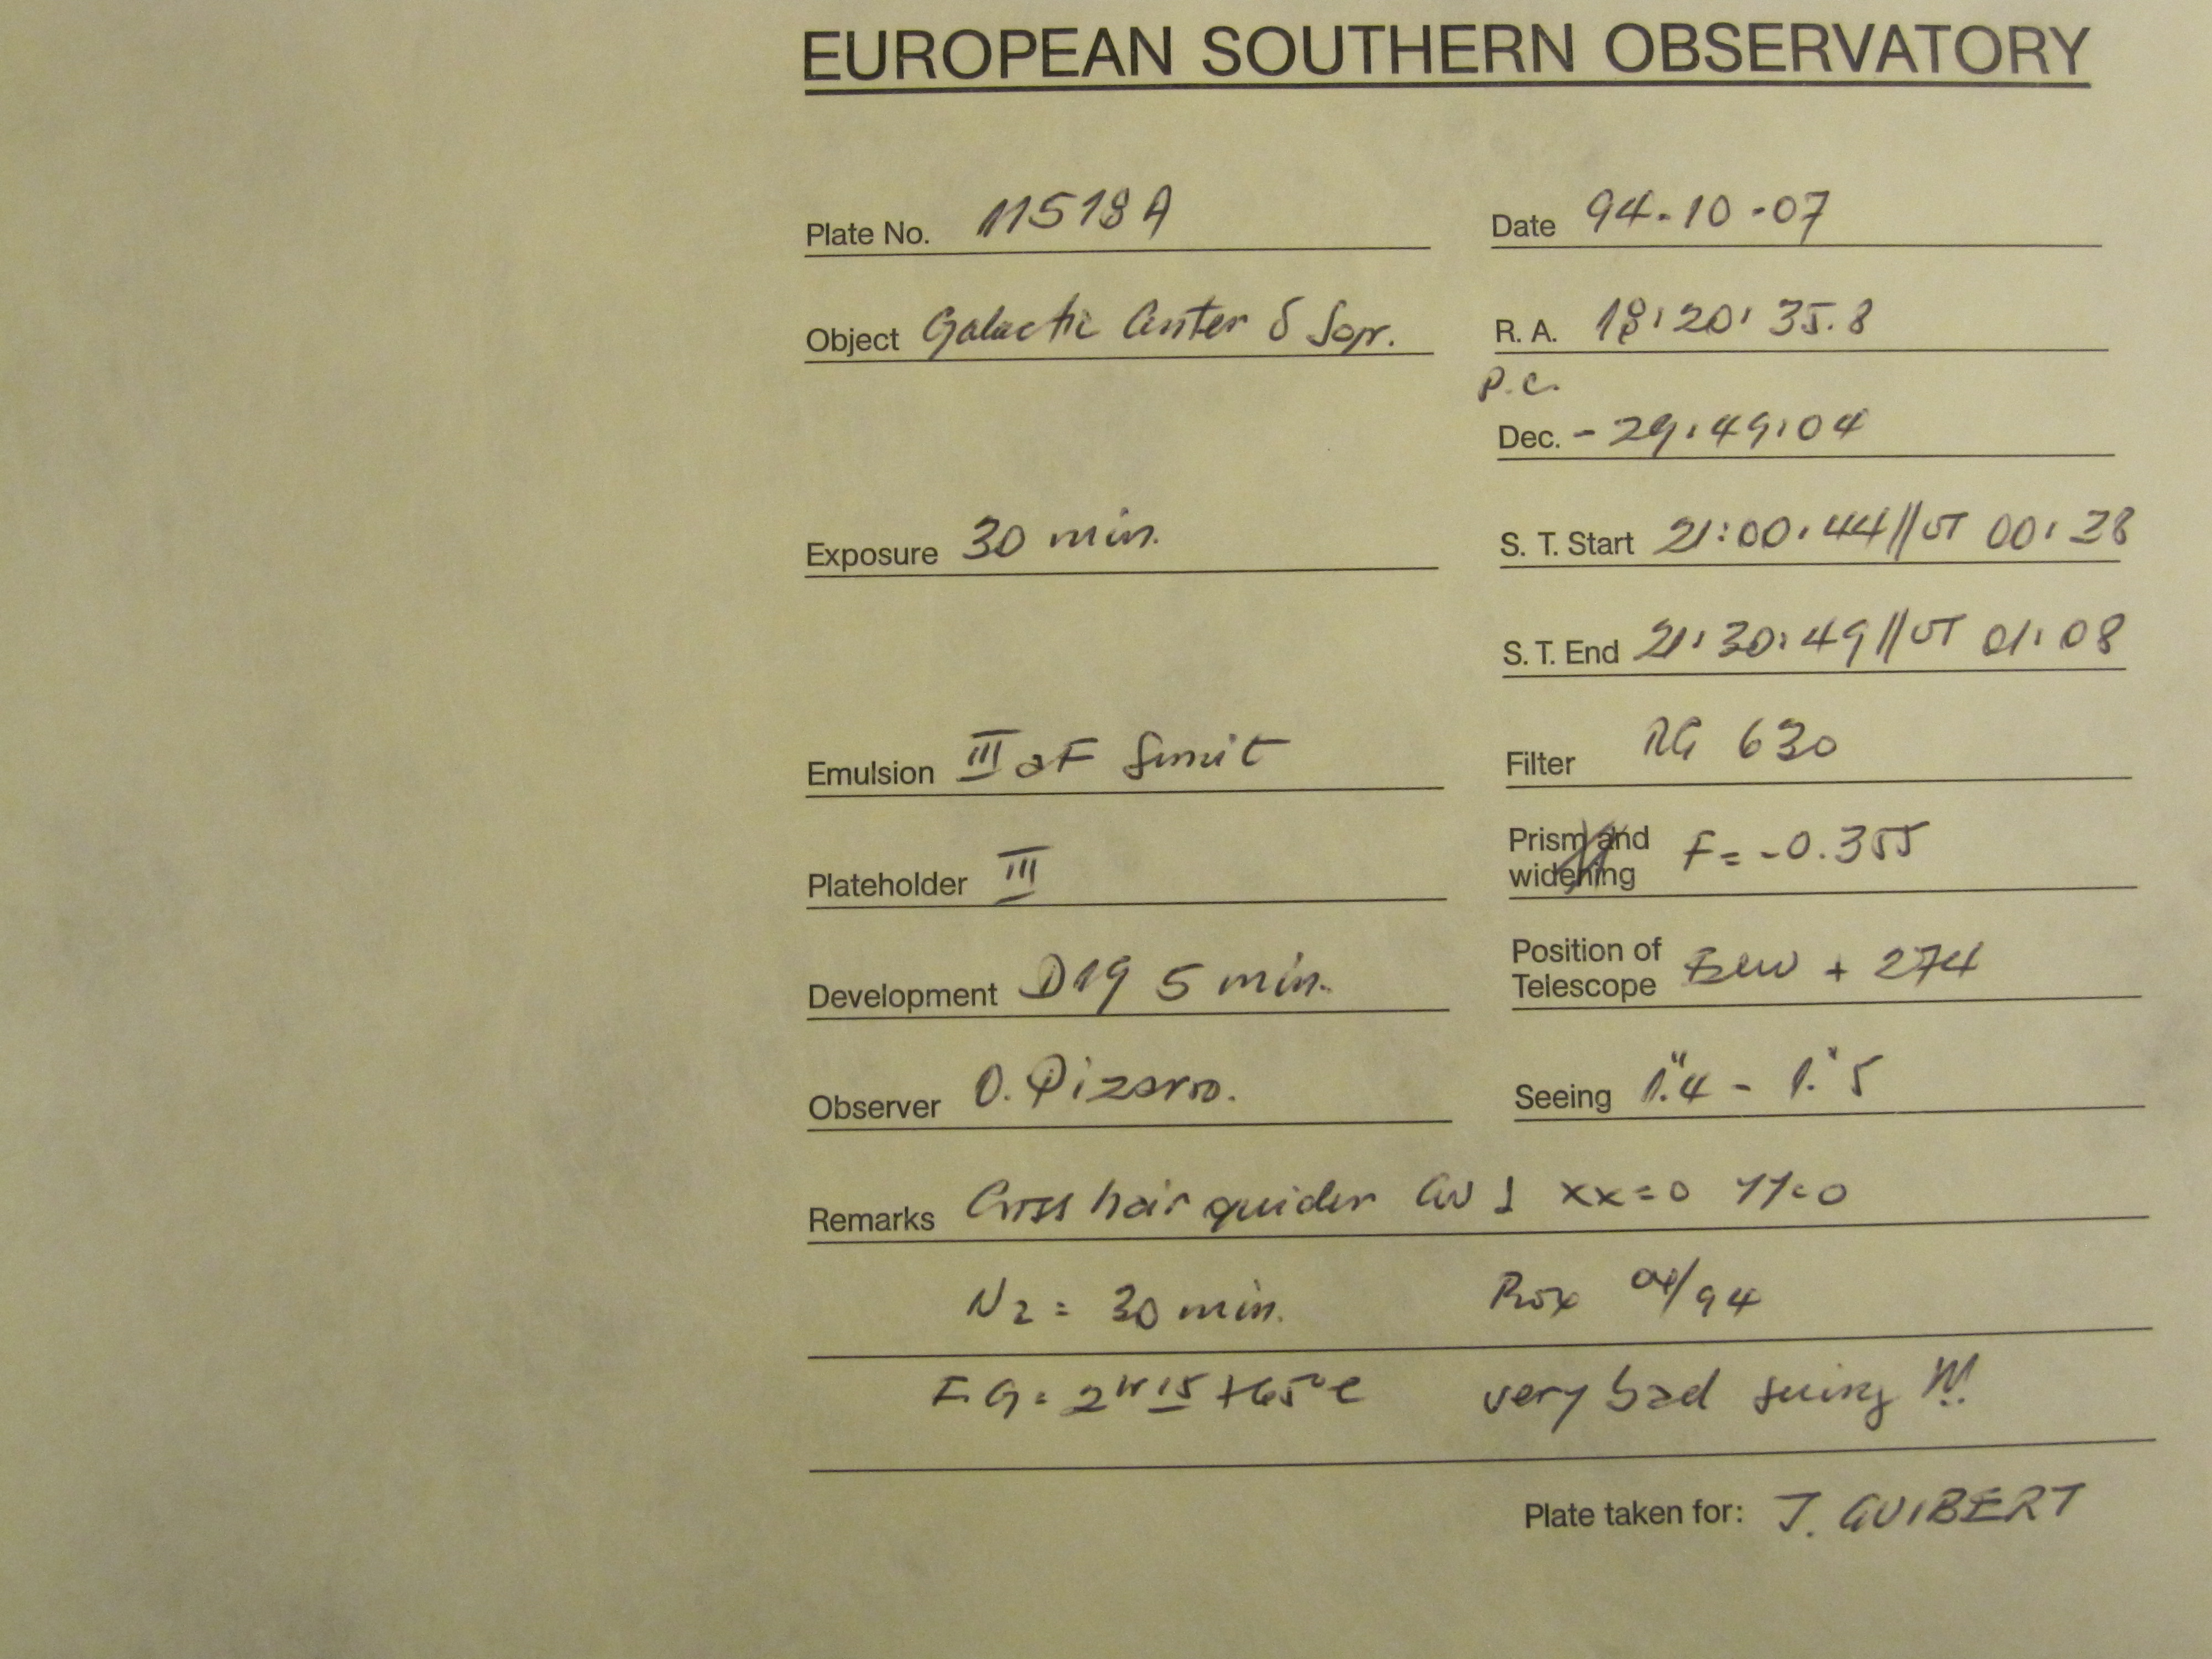 EUROPEAN SOUTHERN OBSERVATORY
Plate No. 11518A Date 94-10-07
Object Galactic Center δ R. A. 18:20:35.8
P.C.
Dec. -29:49:04
Exposure 30 min. S. T. Start 21:00:44//UT 00:28
S. T. End 21:30:49//UT 01:08
Emulsion III aF Filter RG 630
Plateholder III Prism and widening F=-0.355
Development D19 5 min. Position of Telescope + 274
Observer O. Pizarro. Seeing 1."4 - 1."5
Remarks Cross hair guider xx=0 YY=0
N2 = 30 min. /94
F.G = very bad seing !!!
Plate taken for: J. GUIBERT